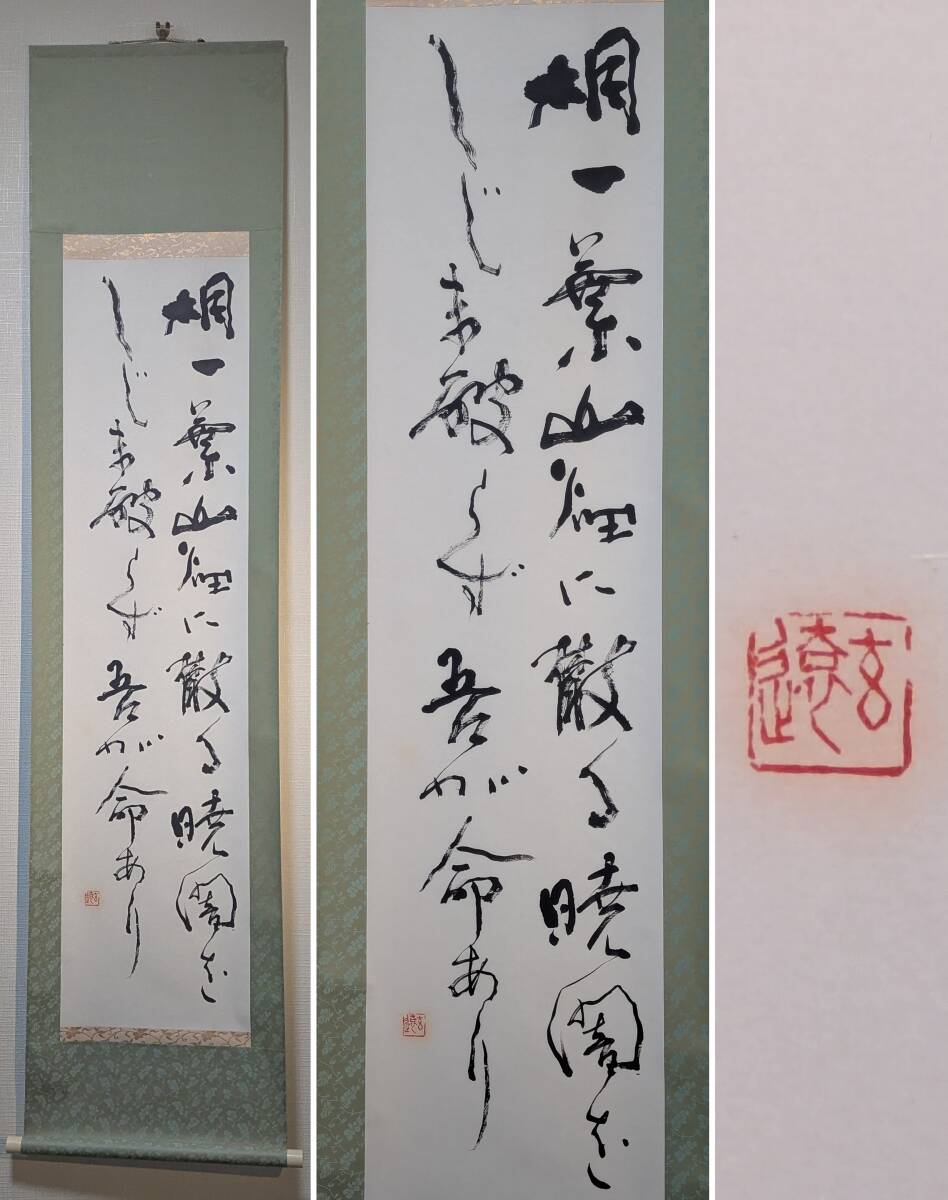 桐一葉山に散る暁闇を
しじま破らず吾が命あり
玄遼